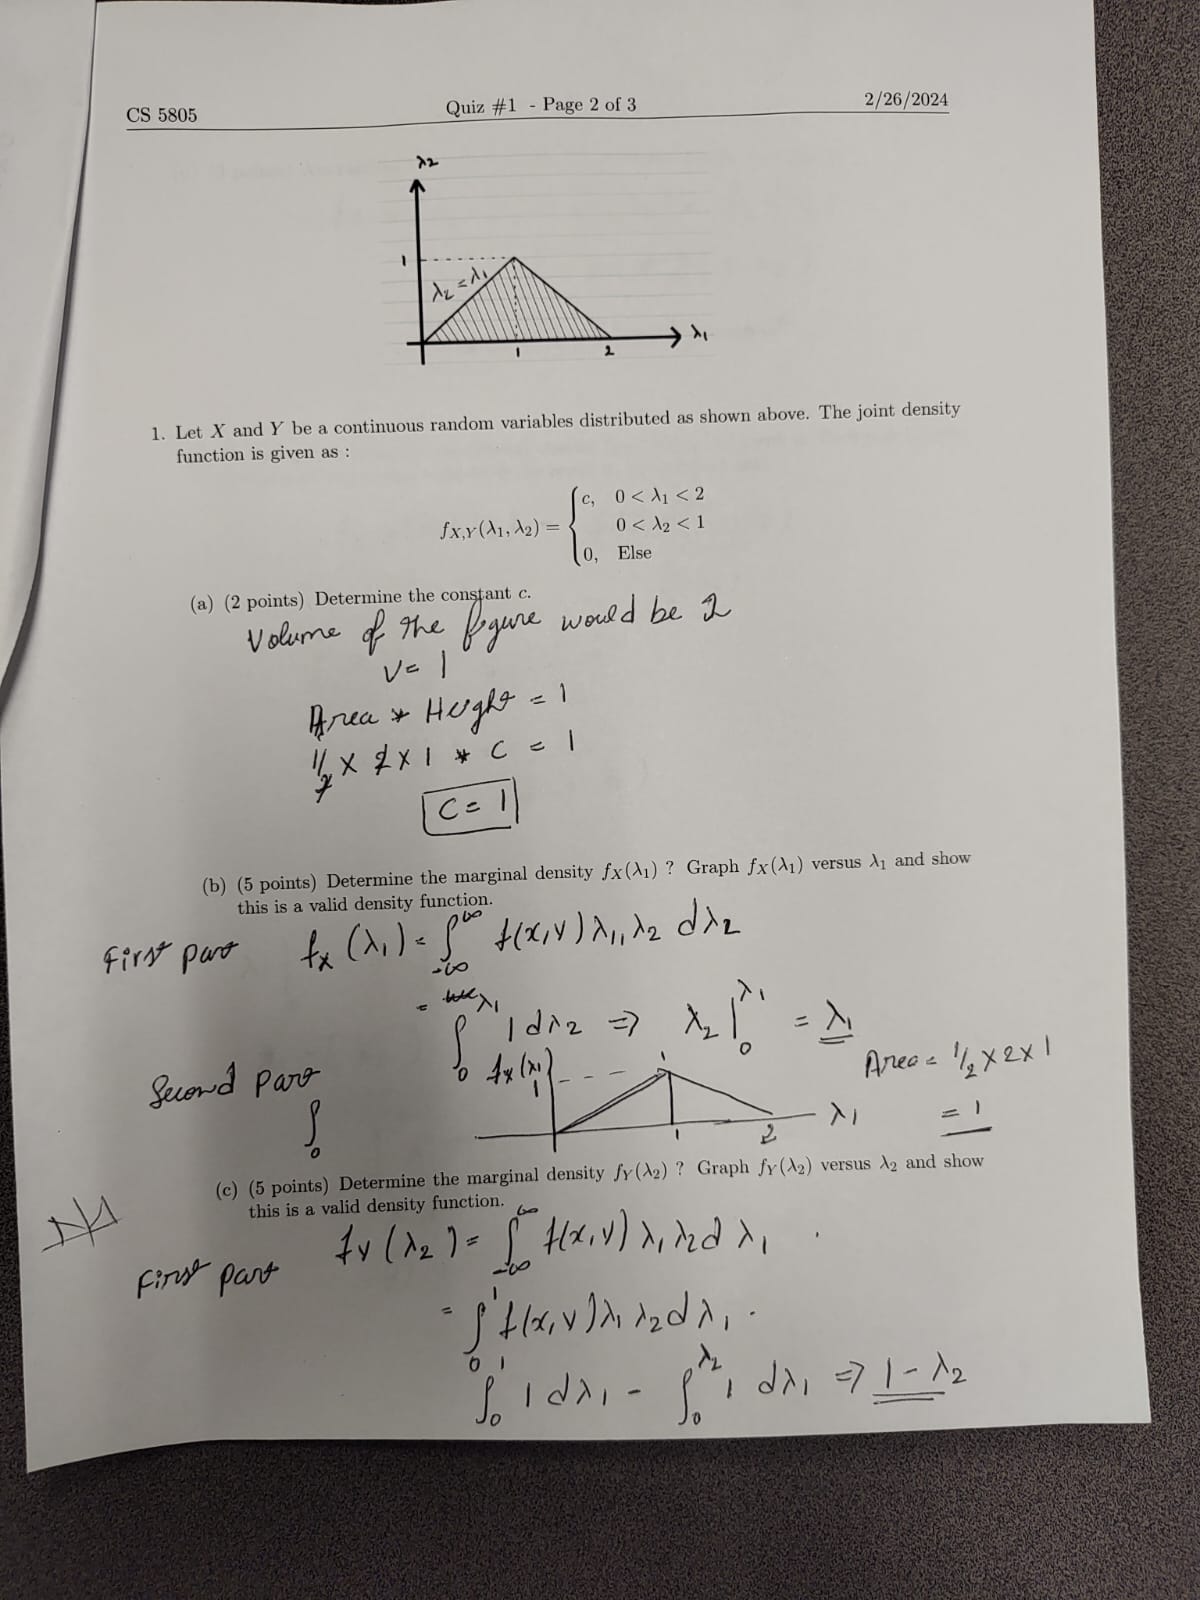 CS 5805 Quiz #1 - Page 2 of 3 2/26/2024
λ2
1
λ2 = λ1
λ1
1 2
1. Let X and Y be a continuous random variables distributed as shown above. The joint density
function is given as :
f_{X,Y}(λ1, λ2) = { c, 0 < λ1 < 2
0 < λ2 < 1
0, Else
(a) (2 points) Determine the constant c.
Volume of the figure would be 1
V = 1
Area * Height = 1
1/2 × 2 × 1 * C = 1
C = 1
(b) (5 points) Determine the marginal density f_X(λ1) ? Graph f_X(λ1) versus λ1 and show
this is a valid density function.
First part f_x (λ1) = ∫_{-∞}^{∞} f(x,y) λ1, λ2 dλ2
= ∫_0^{λ1} 1 dλ2 ⇒ λ2 |_0^{λ1} = λ1
Second part
∫_0
f_x(λ1)
1
1
1 2
λ1
Area = 1/2 × 2 × 1
= 1
(c) (5 points) Determine the marginal density f_Y(λ2) ? Graph f_Y(λ2) versus λ2 and show
this is a valid density function.
First part f_y (λ2) = ∫_{-∞}^{∞} f(x,y) λ1 λ2 d λ1
= ∫_0^1 f(x,y) λ1 λ2 d λ1
∫_0^1 1 dλ1 - ∫_0^{λ2} 1 dλ1 ⇒ 1 - λ2